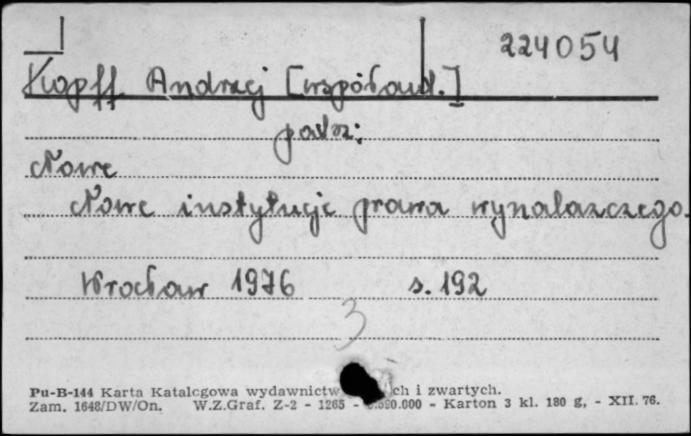 224054
Kopff Andrzej [współaut.]
patrz:
Nowe
Nowe instytucje prawa wynalazczego.
Wrocław 1976 s. 192
3
Pu-B-144 Karta Katalogowa wydawnictw ch i zwartych.
Zam. 1648/DW/On. W.Z.Graf. Z-2 - 1265 - .000 - Karton 3 kl. 180 g, - XII. 76.